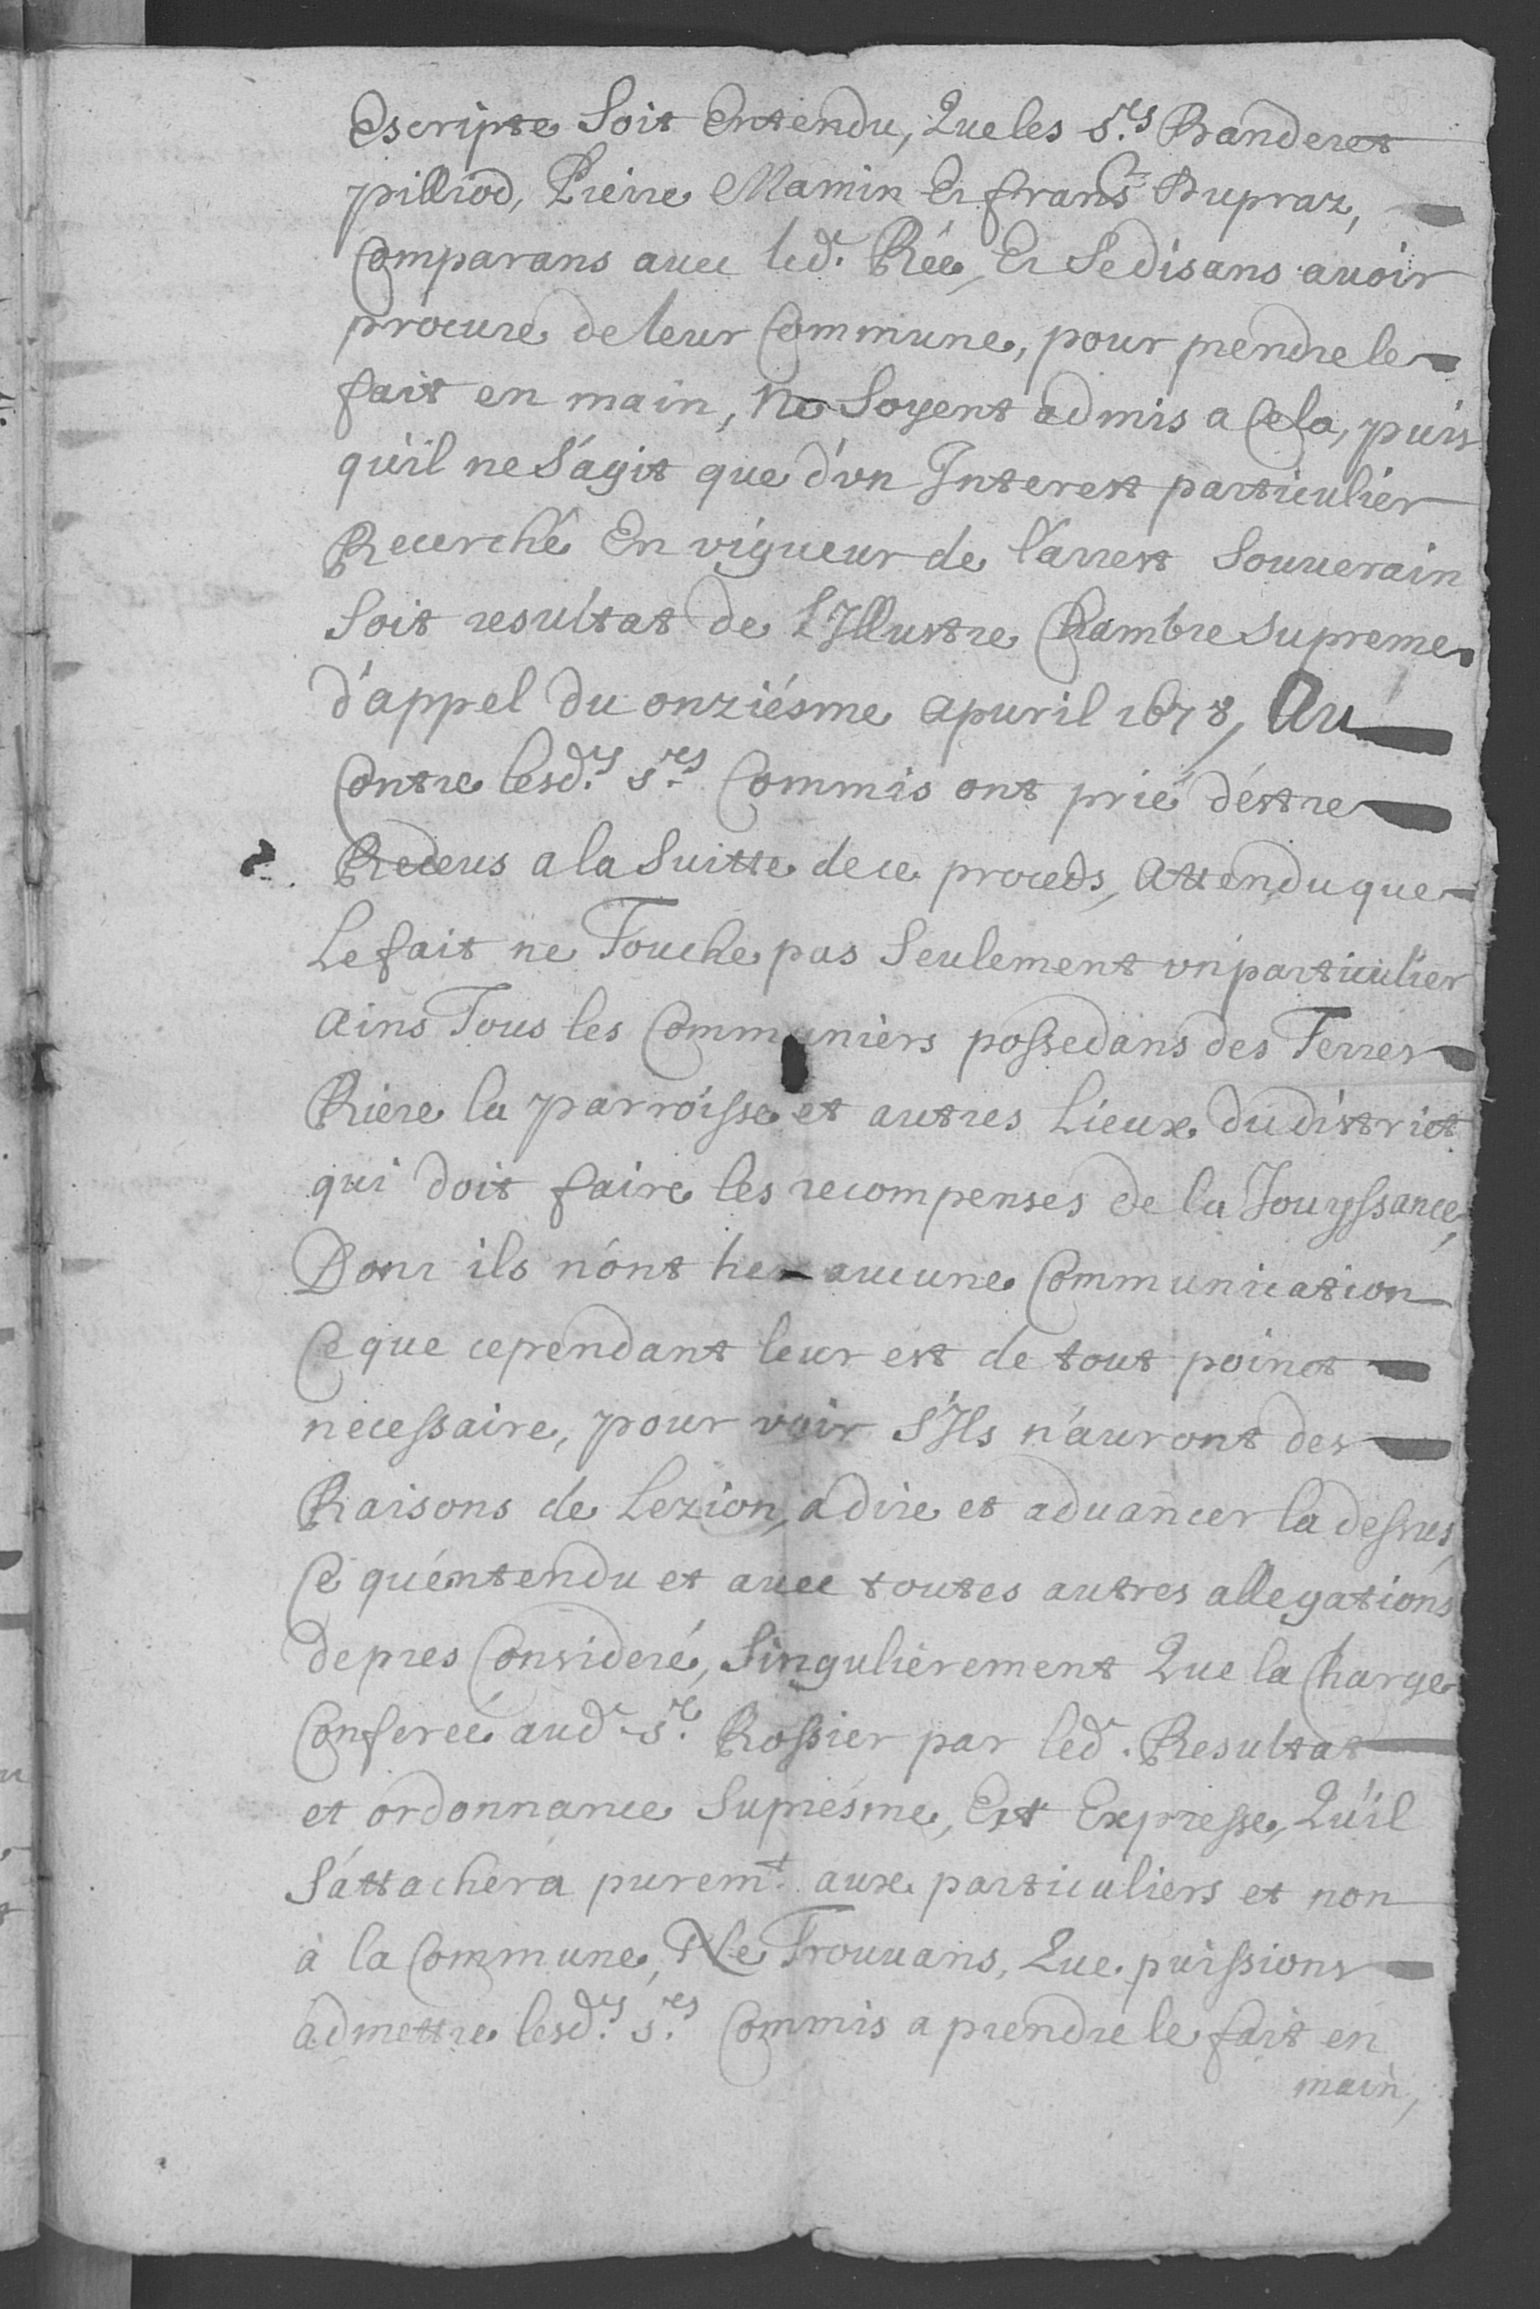 Escripte Soit Entendu, Que les S.rs Banderet
pilliod, Pierre Mamin Et frans Dupraz,
Comparans avec led. Rée, Et Se disans avoir
procure de leur Commune, pour prendre le
fait en main, Ne Soyent admis a Cela, puis
qu'il ne S'agit que d'vn Interest particulier
Recerché En vigueur de l'arrest Souuerain
Soit resultat de L'Illustre Chambre Supreme
d'appel du onziésme apuril 1678, Au
Contre lesd.s s.rs Commis ont prié d'éstre
Receus a la Suitte de ce proceds, Attendu que
Le fait ne Touche pas Seulement vn particulier
Ains Tous les Communiers possedans des Terres
Riere la parroisse et autres Lieux du district
qui doit faire les recompenses de la Jouyssance,
Dont ils n'ont heu aucune Communication
Ce que cependant leur est de tout poinct
necessaire, pour voir S'Ils n'auront des
Raisons de Lezion, a dire et aduancer la dessus,
Ce qu'entendu et avec toutes autres allegations
de pres Consideré, Singulierement Que la Charge
Conferée aud. S.r Rossier par led. Resultat
et ordonnance Supresme, Est Expresse, Qu'il
S'attachera purem.t aux particuliers et non
à la Commune, Ne Trouuans, Que puissions
admettre lesd.s s.rs Commis a prendre le fait en
main,